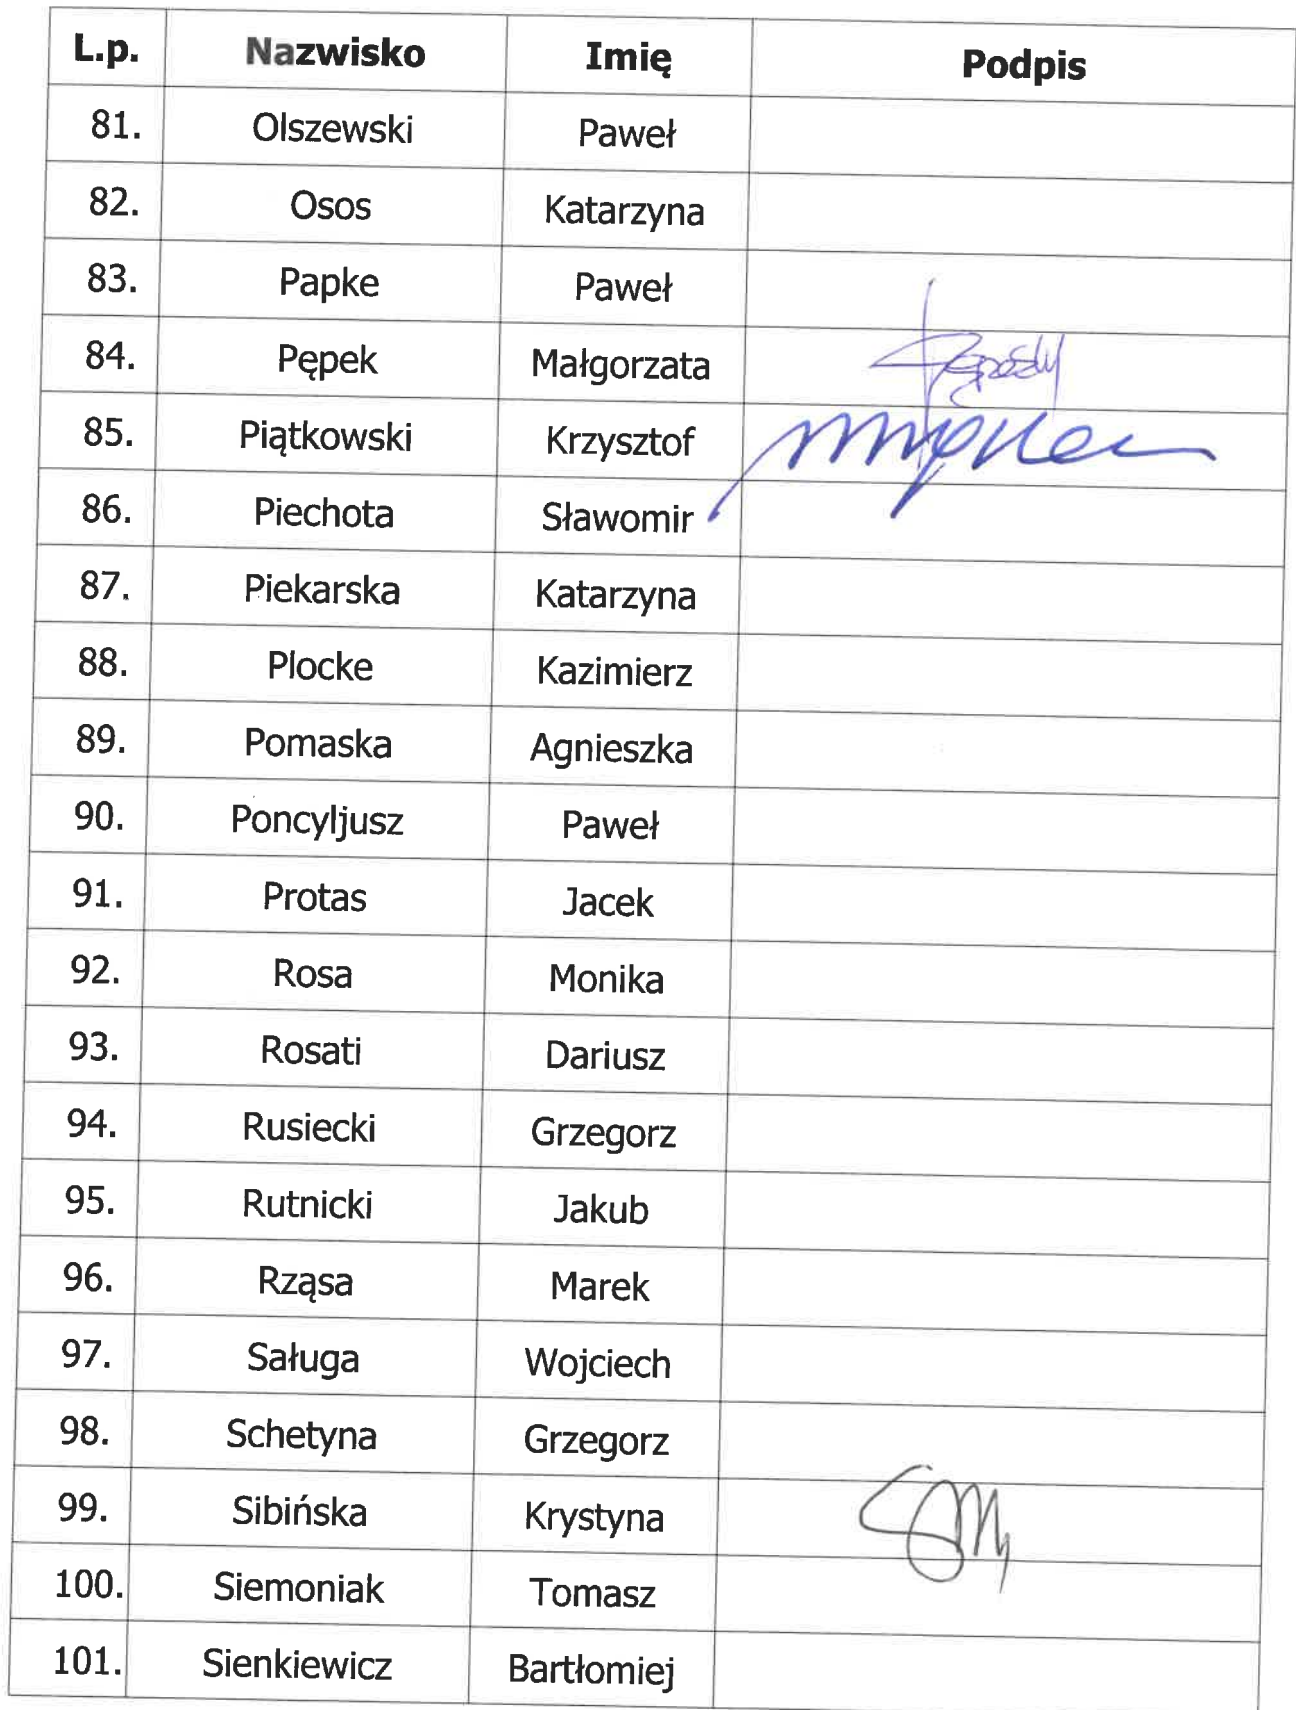 L.p. Nazwisko Imię Podpis
81. Olszewski Paweł
82. Osos Katarzyna
83. Papke Paweł
84. Pępek Małgorzata
85. Piątkowski Krzysztof
86. Piechota Sławomir
87. Piekarska Katarzyna
88. Plocke Kazimierz
89. Pomaska Agnieszka
90. Poncyljusz Paweł
91. Protas Jacek
92. Rosa Monika
93. Rosati Dariusz
94. Rusiecki Grzegorz
95. Rutnicki Jakub
96. Rząsa Marek
97. Saługa Wojciech
98. Schetyna Grzegorz
99. Sibińska Krystyna
100. Siemoniak Tomasz
101. Sienkiewicz Bartłomiej